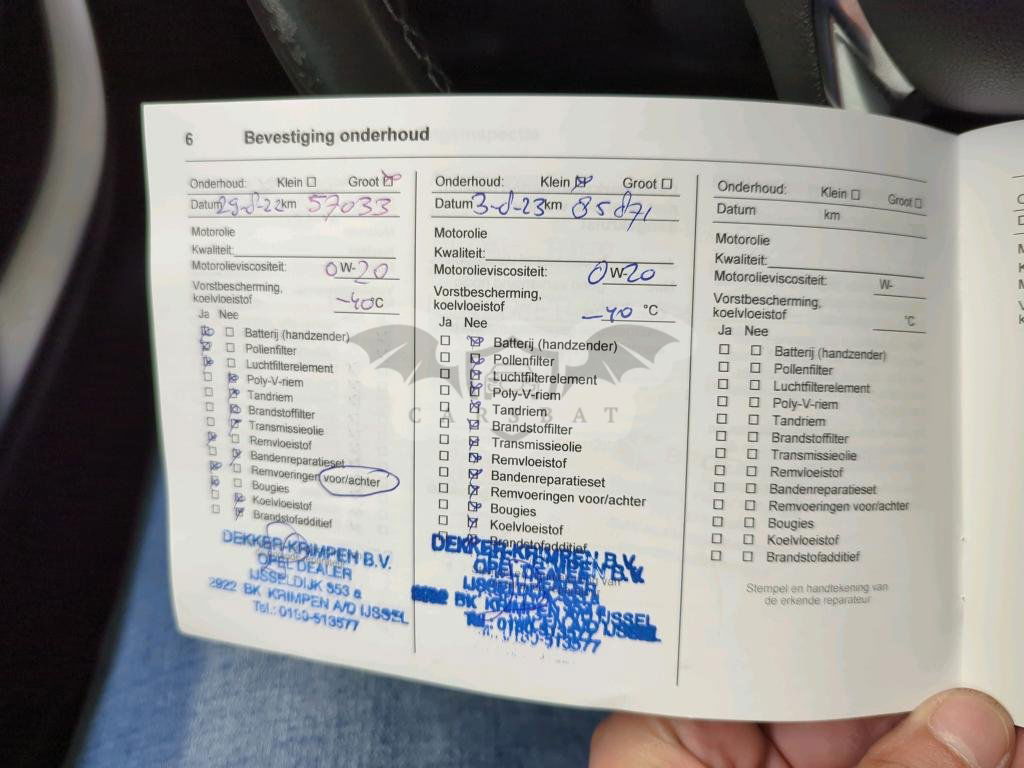 6 Bevestiging onderhoud
Onderhoud: Klein Groot
Datum 29-8-22 km 57033
Motorolie
Kwaliteit:
Motorolieviscositeit: 0W-20
Vorstbescherming,
koelvloeistof -40°C
Ja Nee
Batterij (handzender)
Pollenfilter
Luchtfilterelement
Poly-V-riem
Tandriem
Brandstoffilter
Transmissieolie
Remvloeistof
Bandenreparatieset
Remvoeringen voor/achter
Bougies
Koelvloeistof
Brandstofadditief
DEKKER-KRIMPEN B.V.
OPEL DEALER
IJSSELDIJK 353 a
2922 BK KRIMPEN A/D IJSSEL
Tel.: 0180-513577
Onderhoud: Klein Groot
Datum 3-8-23 km 85871
Motorolie
Kwaliteit:
Motorolieviscositeit: 0W-20
Vorstbescherming,
koelvloeistof -40 °C
Ja Nee
Batterij (handzender)
Pollenfilter
Luchtfilterelement
Poly-V-riem
Tandriem
Brandstoffilter
Transmissieolie
Remvloeistof
Bandenreparatieset
Remvoeringen voor/achter
Bougies
Koelvloeistof
Brandstofadditief
DEKKER-KRIMPEN B.V.
OPEL DEALER
BK KRIMPEN A/D IJSSEL
Tel.: 0180-513577
Onderhoud: Klein Groot
Datum km
Motorolie
Kwaliteit:
Motorolieviscositeit: W-
Vorstbescherming,
koelvloeistof °C
Ja Nee
Batterij (handzender)
Pollenfilter
Luchtfilterelement
Poly-V-riem
Tandriem
Brandstoffilter
Transmissieolie
Remvloeistof
Bandenreparatieset
Remvoeringen voor/achter
Bougies
Koelvloeistof
Brandstofadditief
Stempel en handtekening van
de erkende reparateur
CARSBAT